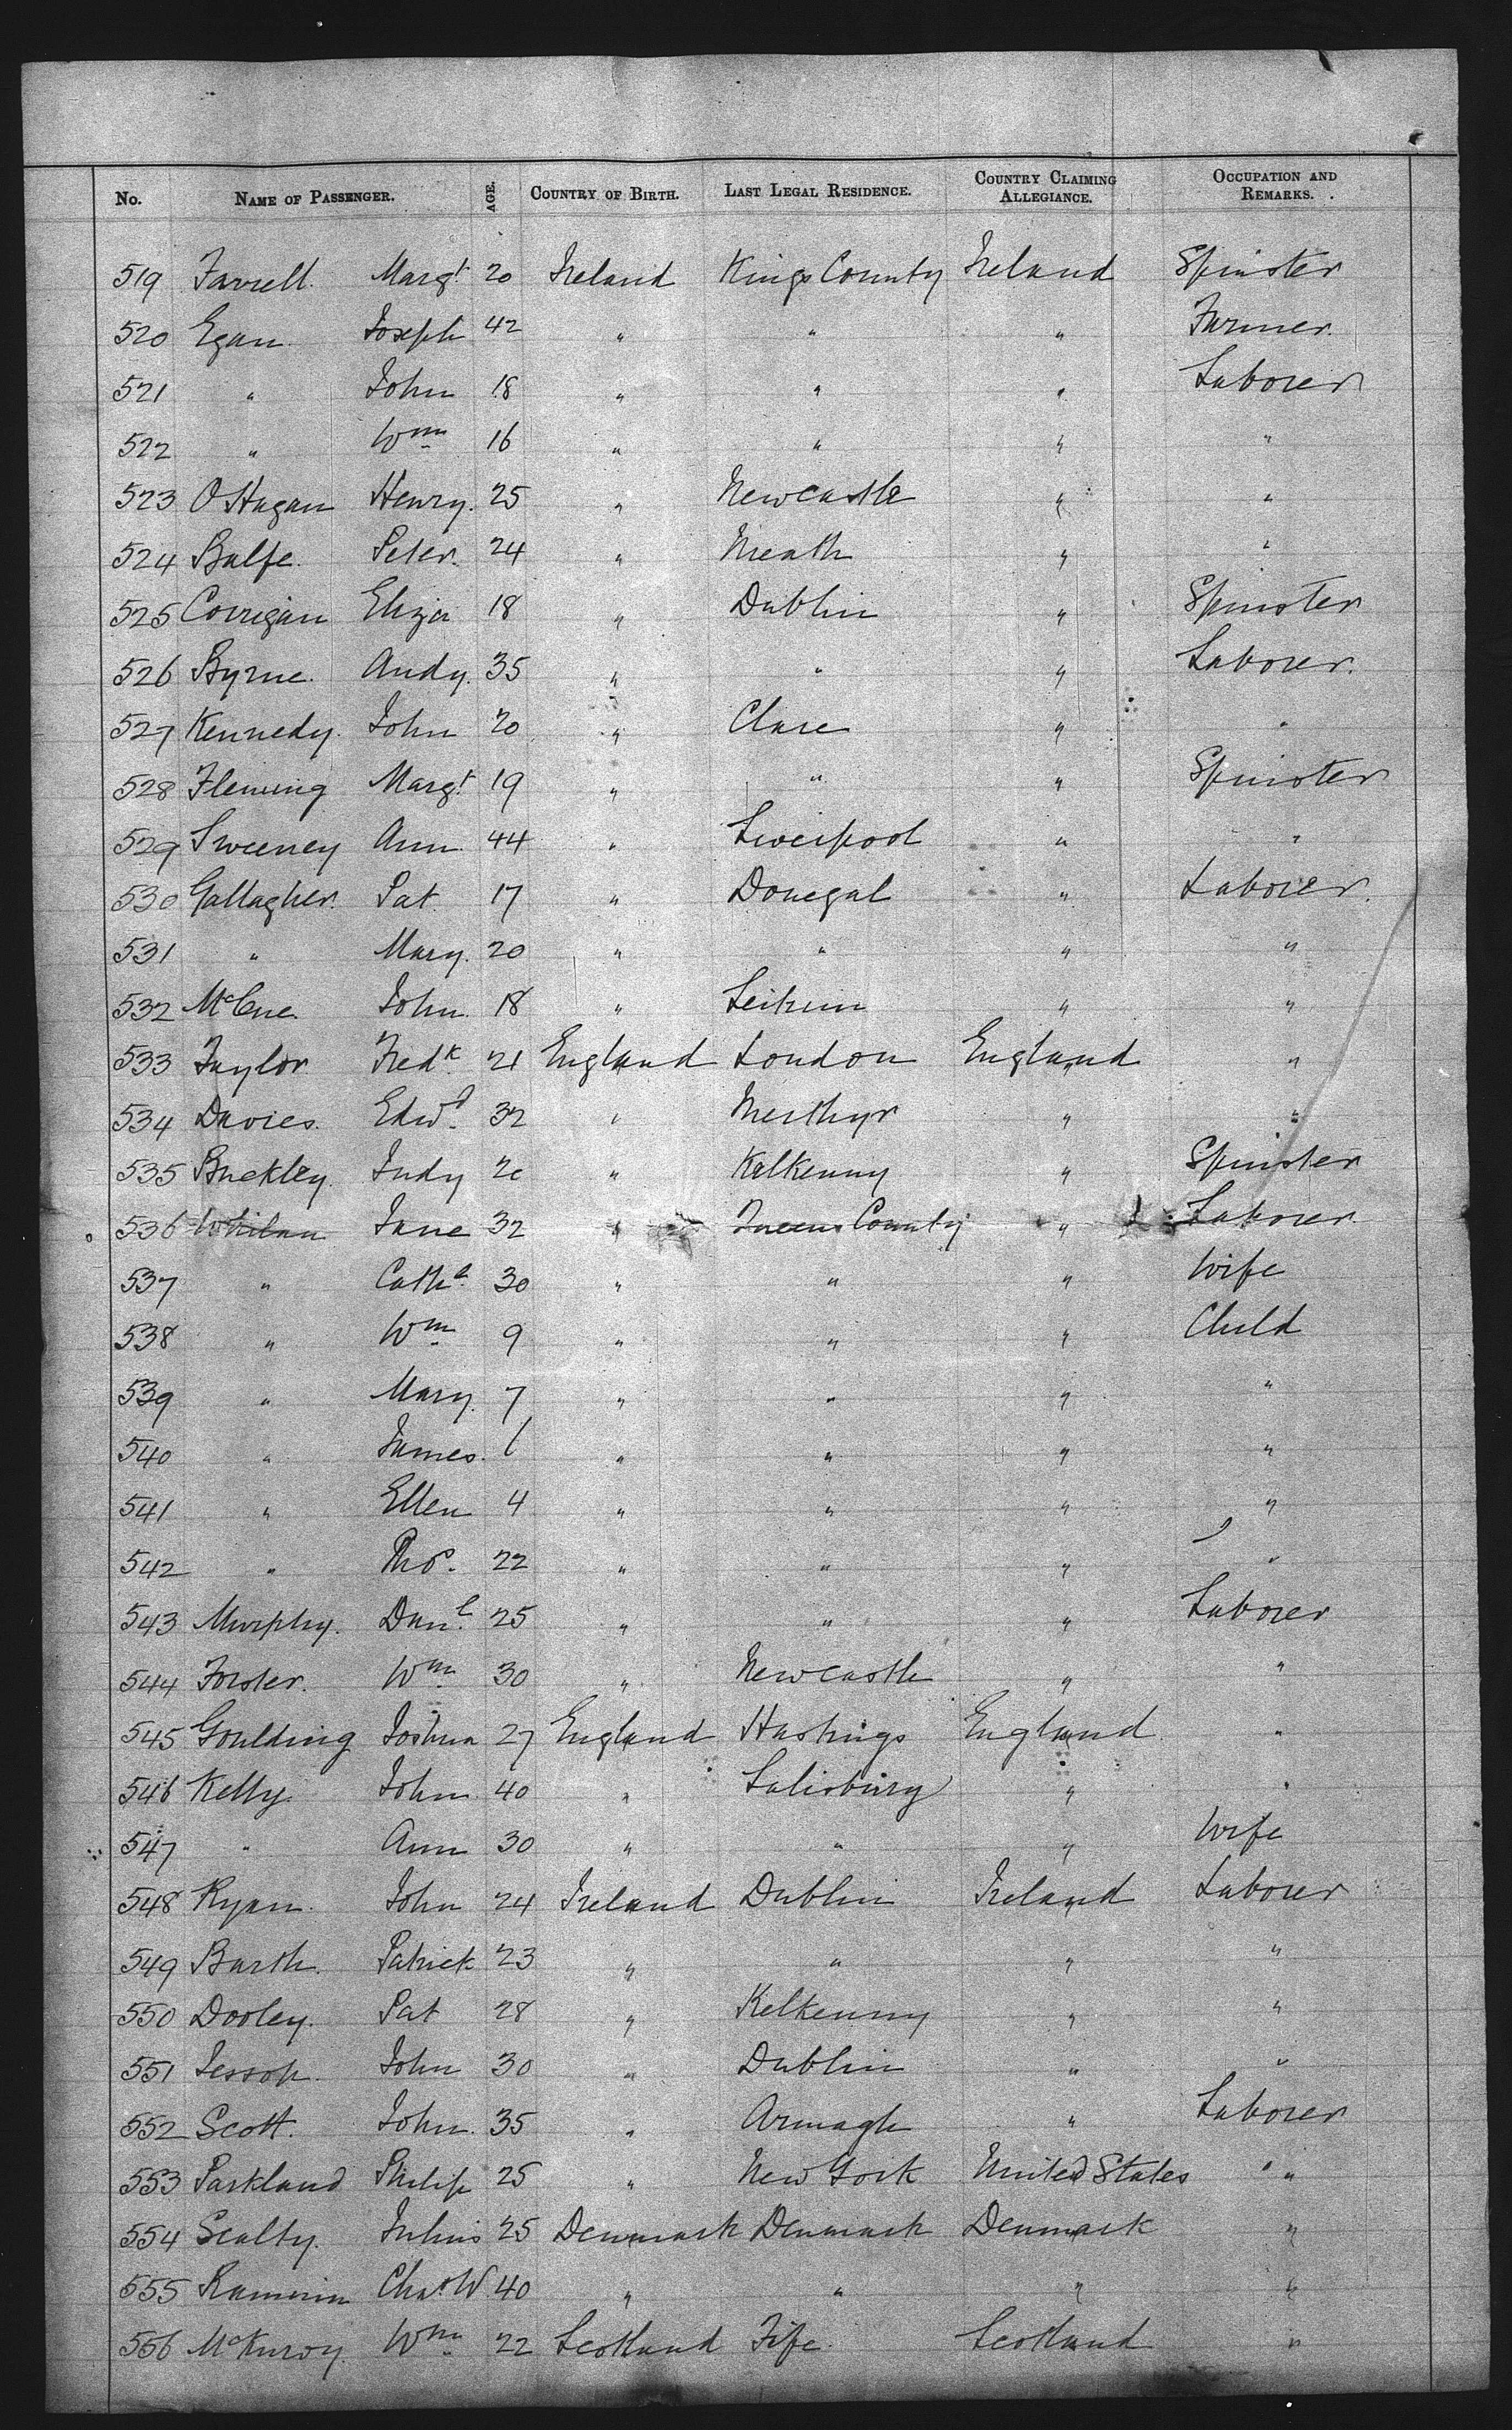 No. NAME OF PASSENGER. AGE. COUNTRY OF BIRTH. LAST LEGAL RESIDENCE. COUNTRY CLAIMING ALLEGIANCE. OCCUPATION AND REMARKS.
519 Farrell Margt 20 Ireland Kings County Ireland Spinster
520 Egan Joseph 42 " " " Farmer
521 " John 18 " " " Laborer
522 " Wm 16 " " " "
523 O'Hagan Henry 25 " Newcastle " "
524 Balfe Peter 24 " Meath " "
525 Corrigan Eliza 18 " Dublin " Spinster
526 Byrne Andy 35 " " " Laborer
527 Kennedy John 20 " Clare " "
528 Fleming Margt 19 " " " Spinster
529 Sweeney Ann 44 " Liverpool " "
530 Gallagher Pat 17 " Donegal " Laborer
531 " Mary 20 " " " "
532 McCue John 18 " Leitrim " "
533 Taylor Fredk 21 England London England "
534 Davies Edwd 32 " Merthyr " "
535 Buckley Judy 20 " Kilkenny " Spinster
536 Whilan Jane 32 " Queens County " Laborer
537 " Cathe 30 " " " Wife
538 " Wm 9 " " " Child
539 " Mary 7 " " " "
540 " James 6 " " " "
541 " Ellen 4 " " " "
542 " Thos 22 " " " "
543 Murphy Danl 25 " " " Laborer
544 Forster Wm 30 " Newcastle " "
545 Goulding Joshua 27 England Hastings England "
546 Kelly John 40 " Salisbury " "
547 " Ann 30 " " " Wife
548 Ryan John 24 Ireland Dublin Ireland Laborer
549 Barth Patrick 23 " " " "
550 Dooley Pat 28 " Kelkenny " "
551 Jessop John 30 " Dublin " "
552 Scott John 35 " Armagh " Laborer
553 Parkland Philip 25 " New York United States "
554 Scalty Julius 25 Denmark Denmark Denmark "
555 Chas W 40 " " " "
556 Wm 22 Scotland Fife Scotland "